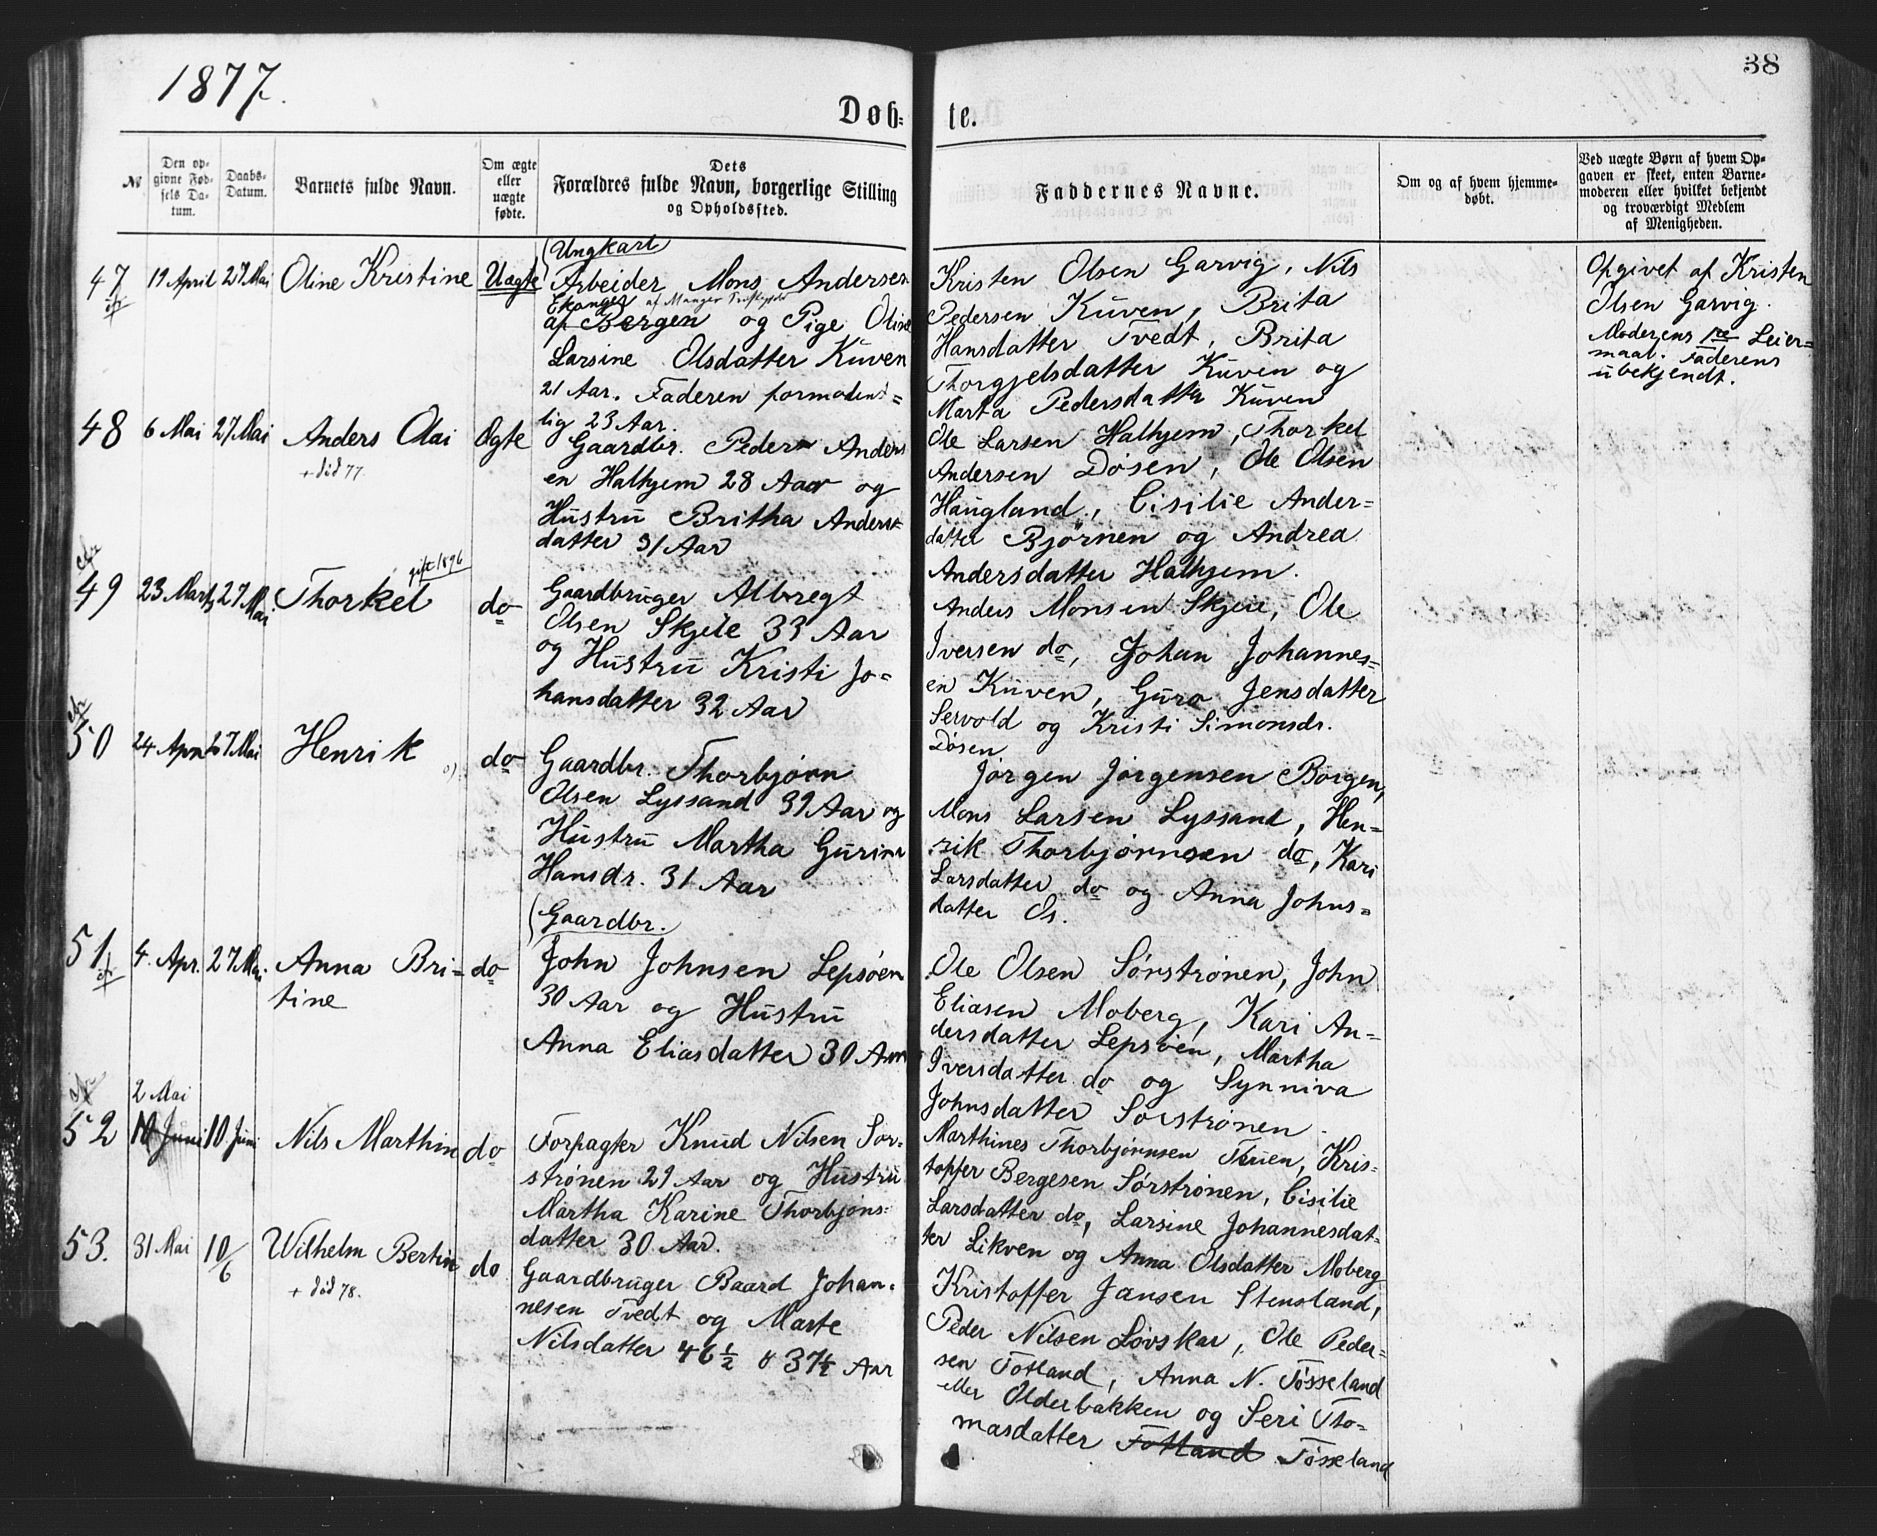 1877.
38
Døb-
te.
№
Den op-
givne Fød-
sels Da-
tum.
Daabs-
Datum.
Barnets fulde Navn.
Om ægte
eller
uægte
fødte.
Dets
Forældres fulde Navn, borgerlige Stilling
og Opholdssted.
Faddernes Navne.
Om og af hvem hjemme-
døbt.
Ved uægte Børn af hvem Op-
gaven er skeet, enten Barne-
moderen eller hvilket bekjendt
og troværdigt Medlem
af Menigheden.
47
19 April
27 Mai
Oline Kristine
Uægte
Ungkarl
Arbeider Mons Andersen
Ekanger af Manger
af Bergen og Pige Oline
Larsine Olsdatter Kuven
21 Aar. Faderen formodent=
lig 23 Aar.
Kristen Olsen Garvig, Nils
Pedersen Kuven, Brita
Hansdatter Tvedt, Brita
Thorgjelsdatter Kuven og
Marta Pedersdatter Kuven
Opgivet af Kristen
Olsen Garvig.
Moderens 1ste Leier=
maal. Faderens
ubekjendt.
48
6 Mai
27 Mai
Anders Olai
+ död 77.
Ægte
Gaardbr. Peder Anders
en Halhjem 28 Aar og
Hustru Britha Anders
datter 31 Aar
Ole Larsen Halhjem, Thorkel
Andersen Døsen, Ole Olsen
Haugland, Cisilie Ander=
datter Bjørnen og Andrea
Andersdatter Halhjem.
49
23 Marts
27 Mai
gift 1896
Thorkel
do
Gaardbruger Albregt
Olsen Skjeie 33 Aar
og Hustru Kristi Jo=
hansdatter 32 Aar
Anders Monsen Skjeie, Ole
Iversen do, Johan Johannes=
en Kuven, Guro Jensdatter
Servold og Kristi Simonsdr.
Døsen
50
24 April
27 Mai
Henrik
do
Gaardbr. Thorbjørn
Olsen Lyssand 39 Aar og
Hustru Martha Gurine
Hansdr. 31 Aar
Jørgen Jørgensen Borgen,
Mons Larsen Lyssand, Hen=
rik Thorbjørnsen do, Kari
Larsdatter do og Anna Johns=
datter Os.
51
4. Apr.
27 Mai
Anna Bri-
tine
do
Gaardbr.
John Johnsen Lepsøen
30 Aar og Hustru
Anna Eliasdatter 30 Aar
Ole Olsen Sørstrønen, John
Eliasen Moberg, Kari An=
dersdatter Lepsøen, Martha
Iversdatter do og Synniva
Johnsdatter Sørstrønen.
52
2 Mai
10 Juni
10 Juni
Nils Marthin
do
Forpagter Knud Nilsen Sør-
strønen 29 Aar og Hustru
Martha Karine Thorbjøns=
datter 30 Aar.
Marthines Thorbjørnsen Tuen, Kris=
topfer Bergesen Sørstrønen, Cisilie
Larsdatter do, Larsine Johannesdat=
ter Likven og Anna Olsdatter Moberg
53.
31 Mai
10/6
Wilhelm Bertin
+ död 78.
do
Gaardbruger Baard Johan-
nesen Tvedt og Marte
Nilsdatter 46 1/2 & 37 1/2 Aar
Kristoffer Jansen Stensland,
Peder Nilsen Løvskar, Ole Peder=
sen Totland, Anna N. Tøsseland
eller Olderbakken og Seri Tho-
masdatter Totland Tøsseland